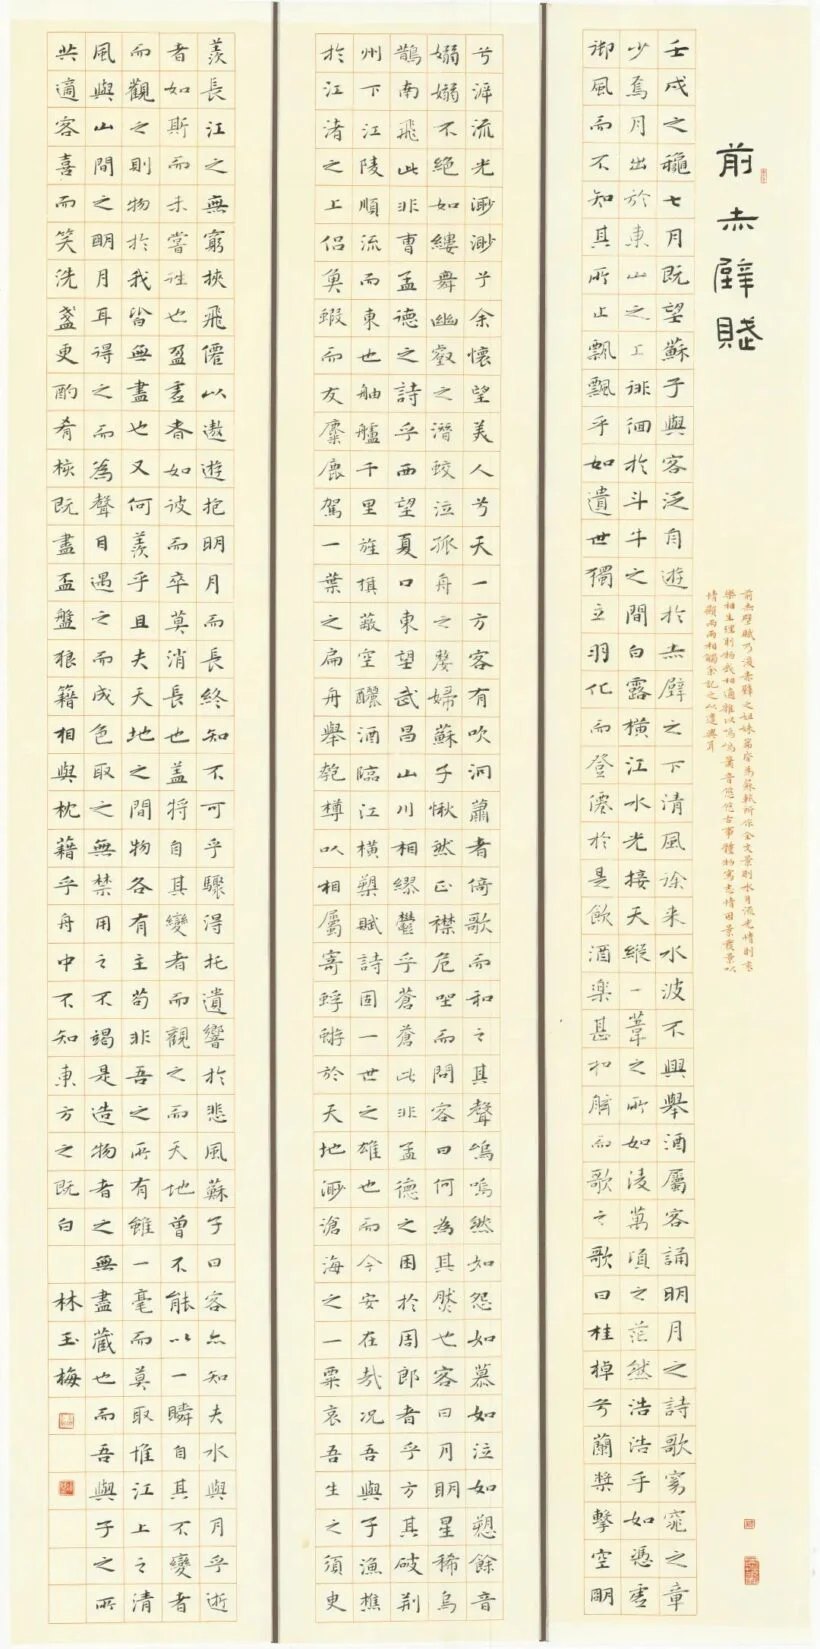 前赤壁賦
前赤壁賦乃後赤壁之姐妹篇皆為蘇軾所作全文景則水月流光情則哀
樂相生理則物我相適雜以嗚嗚簫音悠悠古事體物寫志情因景發景以
情顯兩兩相觸余記之以遣興耳
壬戌之穐七月既望蘇子與客泛舟遊於赤壁之下清風徐来水波不興舉酒屬客誦明月之詩歌窈窕之章
少焉月出於東山之上徘徊於斗牛之間白露橫江水光接天縱一葦之所如淩萬頃之茫然浩浩乎如憑虛
御風而不知其所止飄飄乎如遺世獨立羽化而登僊於是飲酒樂甚扣舷而歌之歌曰桂棹兮蘭槳擊空明
兮泝流光渺渺兮余懷望美人兮天一方客有吹洞簫者倚歌而和之其聲嗚嗚然如怨如慕如泣如愬餘音
嫋嫋不絕如縷舞幽壑之潛蛟泣孤舟之嫠婦蘇子愀然正襟危坐而問客曰何為其然也客曰月明星稀烏
鵲南飛此非曹孟德之詩乎西望夏口東望武昌山川相繆鬱乎蒼蒼此非孟德之困於周郎者乎方其破荊
州下江陵順流而東也舳艫千里旌旗蔽空釃酒臨江橫槊賦詩固一世之雄也而今安在哉況吾與子漁樵
於江渚之上侶魚蝦而友麋鹿駕一葉之扁舟舉匏樽以相屬寄蜉蝣於天地渺滄海之一粟哀吾生之須臾
羨長江之無窮挾飛僊以遨遊抱明月而長終知不可乎驟得托遺響於悲風蘇子曰客亦知夫水與月乎逝
者如斯而未嘗往也盈虛者如彼而卒莫消長也蓋將自其變者而觀之而天地曾不能以一瞬自其不變者
而觀之則物於我皆無盡也又何羨乎且夫天地之間物各有主苟非吾之所有雖一毫而莫取惟江上之清
風與山間之明月耳得之而為聲目遇之而成色取之無禁用之不竭是造物者之無盡藏也而吾與子之所
共適客喜而笑洗盞更酌肴核既盡盃盤狼籍相與枕藉乎舟中不知東方之既白 林玉梅